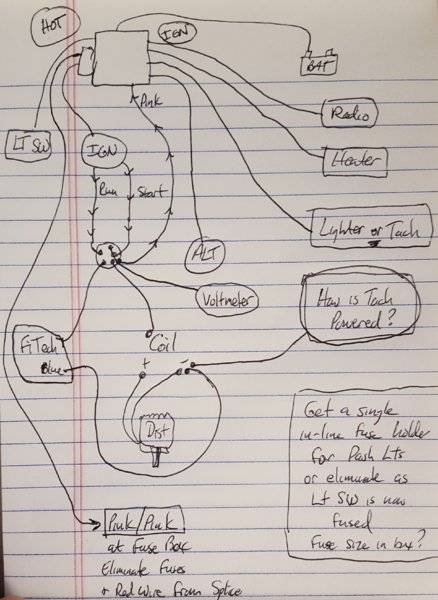 HOT
IGN
BAT
Pink
Radio
LT SW
IGN
Heater
Run
Start
Lighter or Tach
ALT
Voltmeter
How is Tach
Powered?
FiTech
Blue
Coil
+
-
Dist
Get a single
in-line fuse holder
for Dash Lts
or eliminate as
Lt SW is now
fused
Fuse size in box?
Pink/Pink
at Fuse Box
Eliminate Fuses
+ Red Wire From Splice